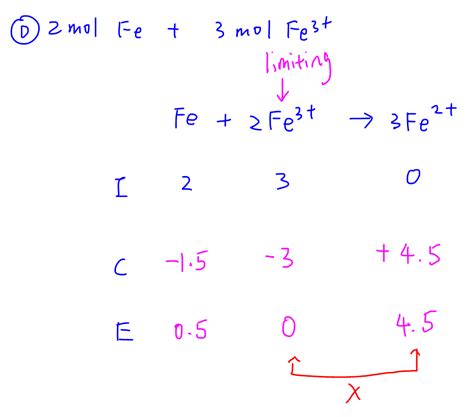 Ⓓ 2 mol Fe + 3 mol Fe³⁺
limiting
Fe + 2Fe³⁺ → 3Fe²⁺
I 2 3 0
C -1.5 -3 +4.5
E 0.5 0 4.5
X